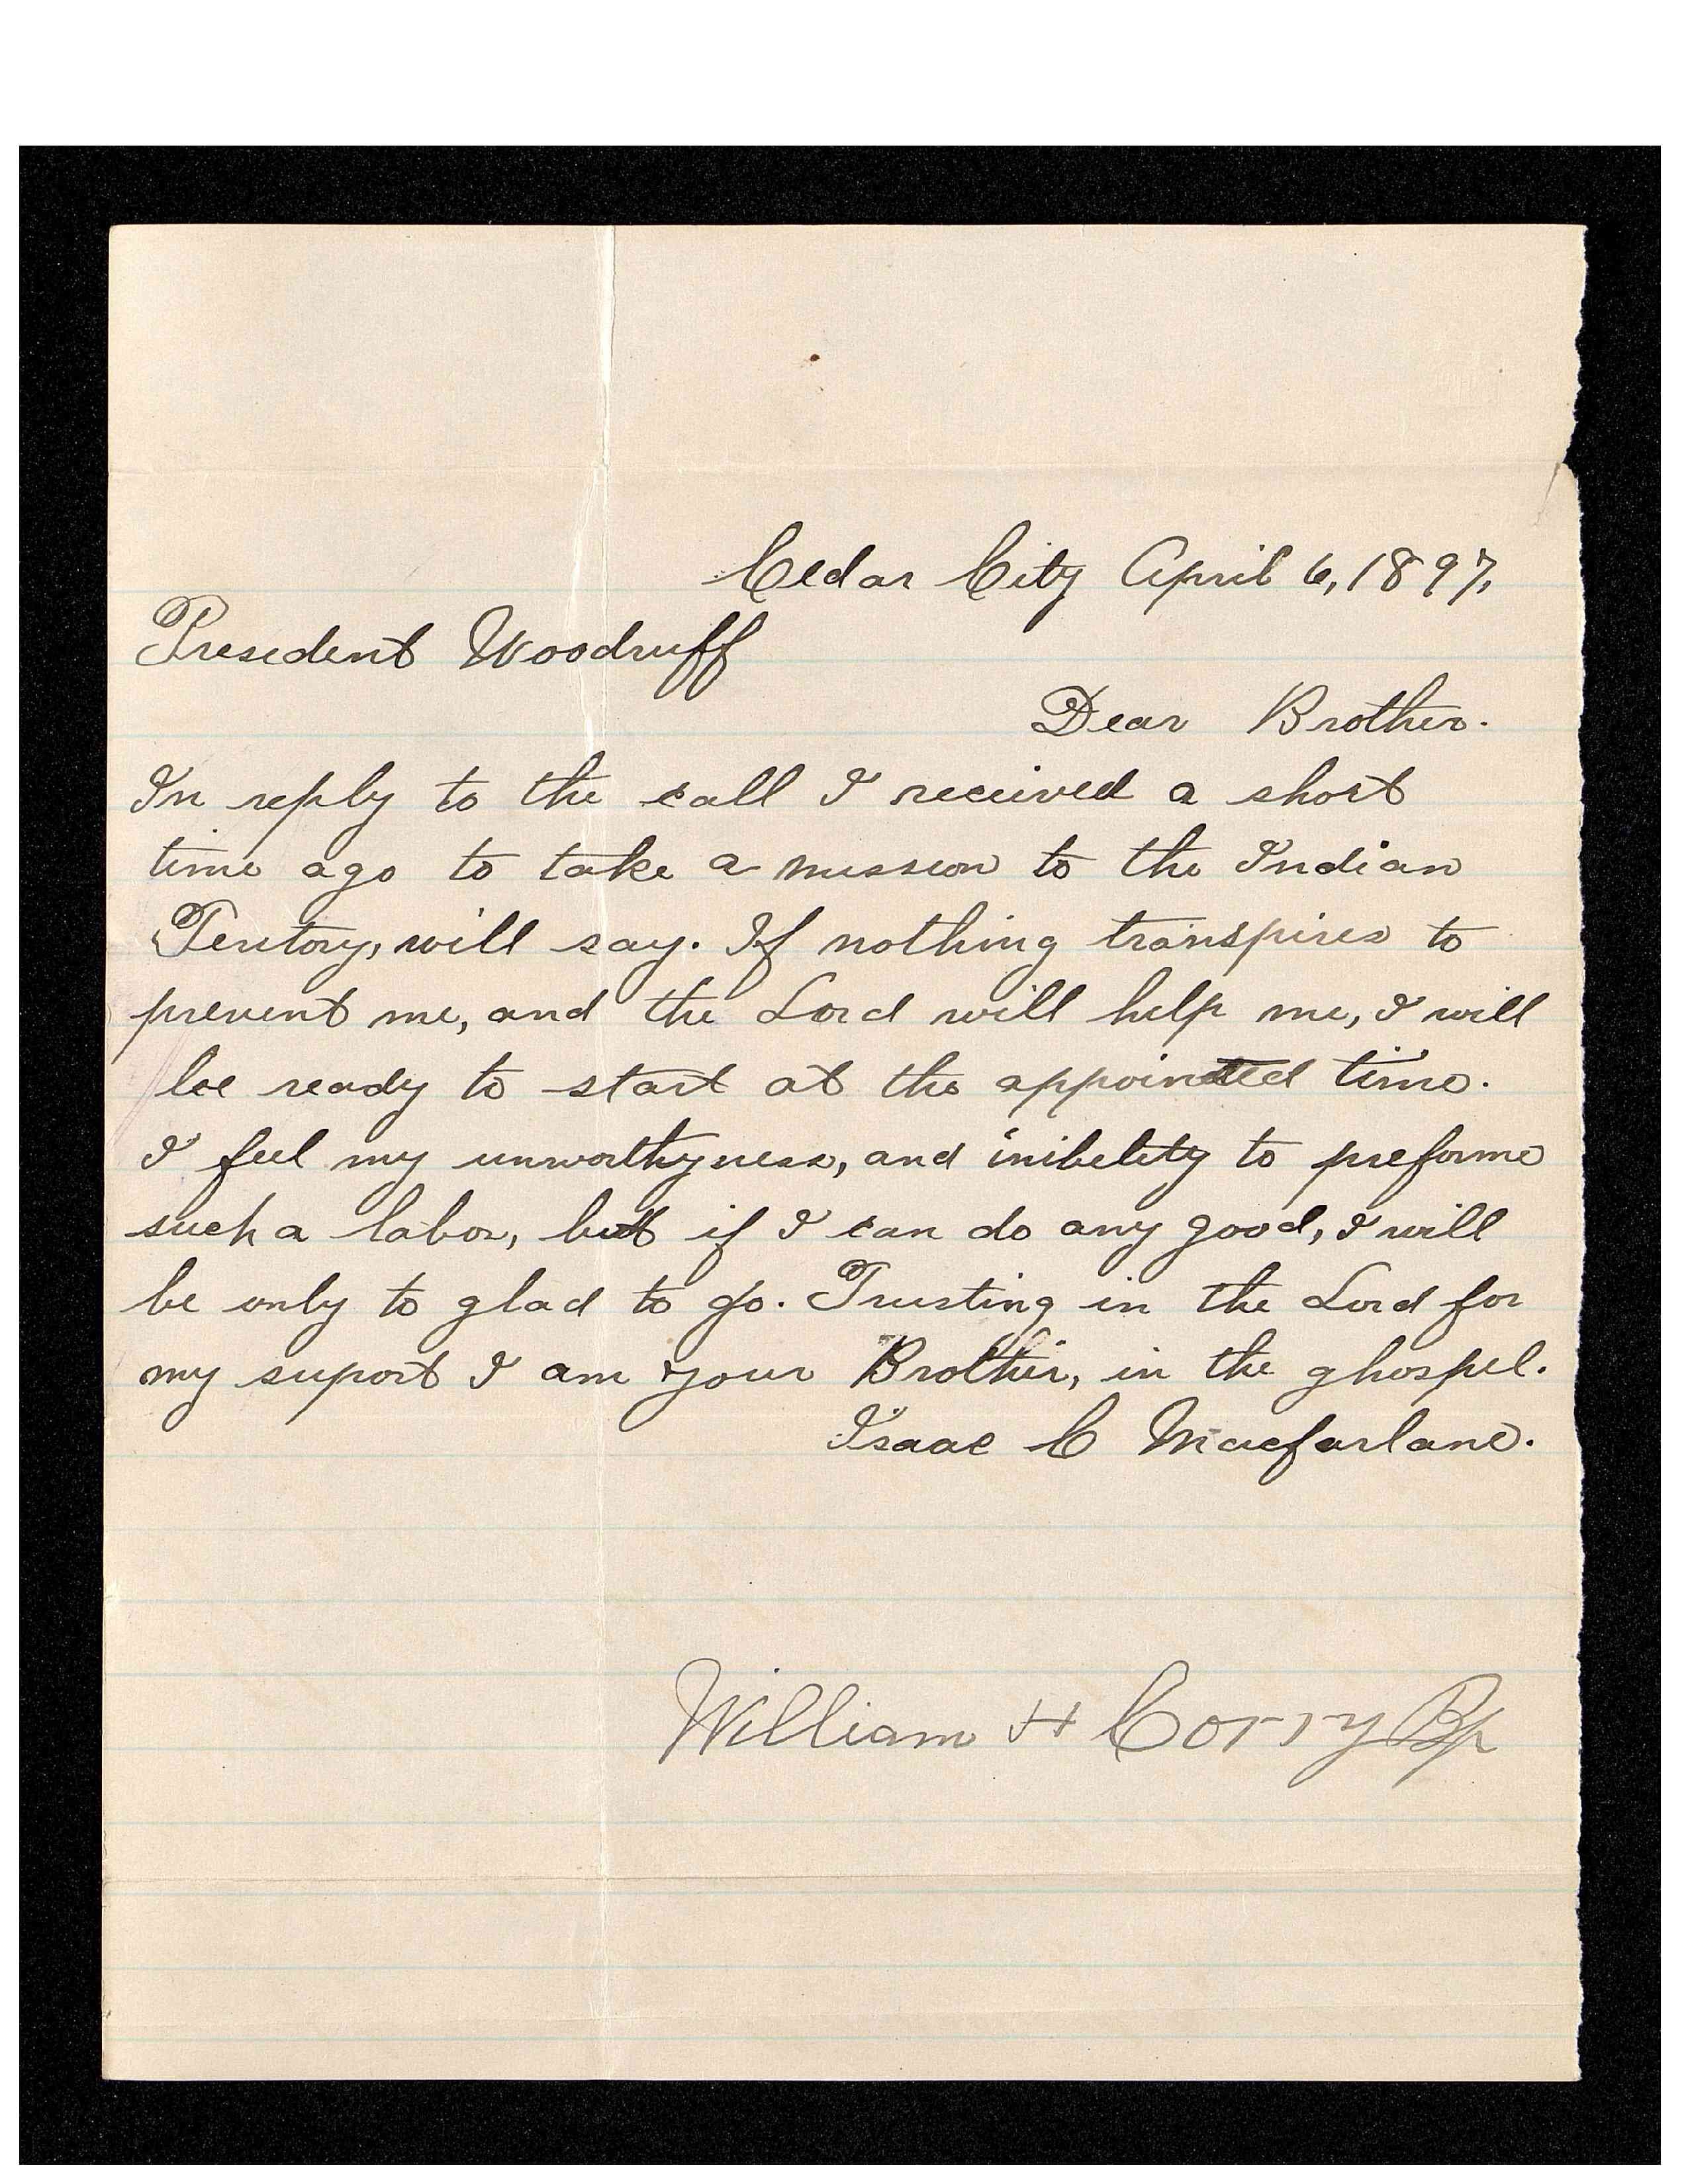 Cedar City April 6, 1897,
President Woodruff
Dear Brother.
In reply to the call I received a short
time ago to take a mission to the Indian
Teritory, will say. If nothing transpires to
prevent me, and the Lord will help me, I will
be ready to start at the appointed time.
I feel my unworthyness, and inibelety to preforme
such a labor, but if I can do any good, I will
be only to glad to go. Trusting in the Lord for
my suport I am your Brother, in the ghospel.
Isaac C Macfarlane.
William H Corry Bp